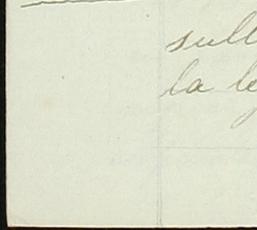 sull
la le